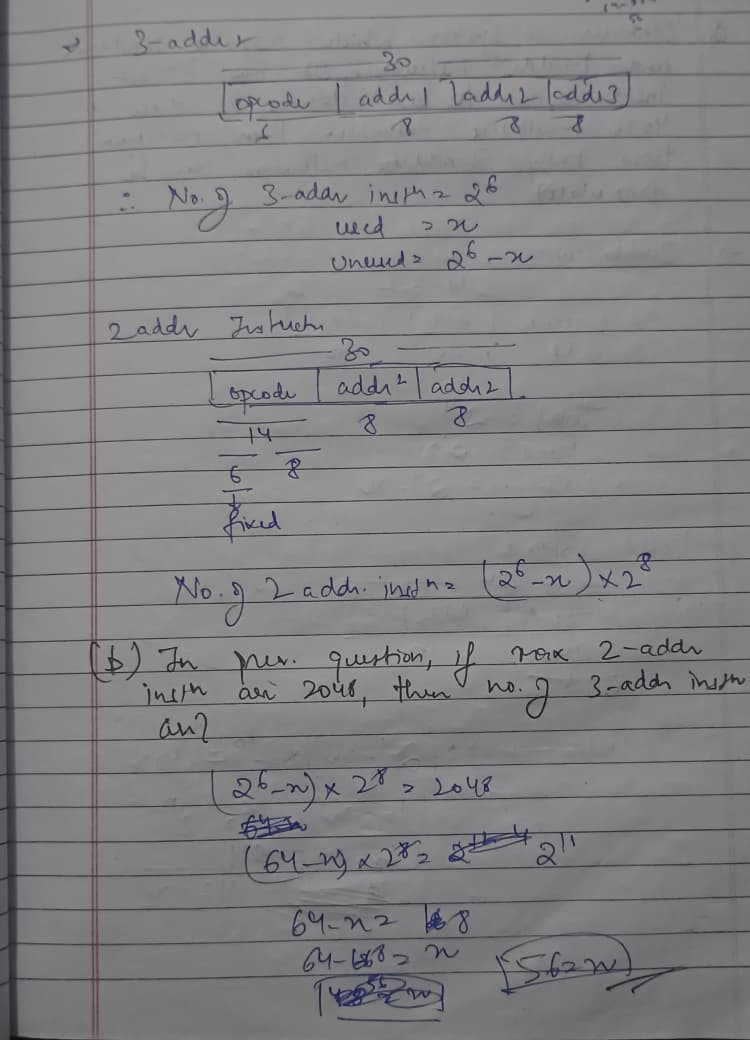 3-addr
30
opcode | addr1 | addr2 | addr3
6 8 8 8
∴ No. of 3-addr instn = 2^6
used = x
unused = 2^6 - x
2 addr Instuctn
30
opcode | addr1 | addr2
14 8 8
6 8
fixed
No. of 2 addr. instn = (2^6 - x) × 2^8
(b) In prev. question, if max 2-addr
instn are 2048, then no. of 3-addr instn
are?
(2^6 - x) × 2^8 = 2048
(64 - x) × 2^8 = 2^11
64 - x = 8
64 - 8 = x
56 = x